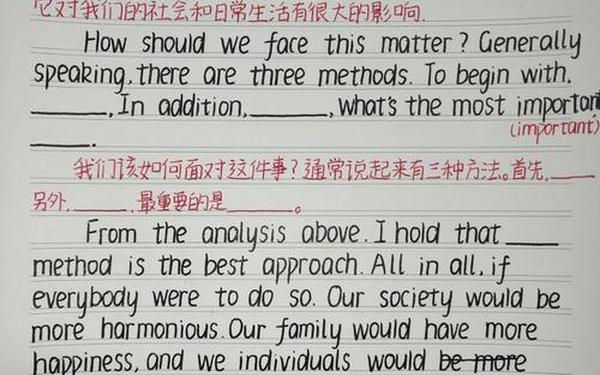 它对我们的社会和日常生活有很大的影响.
How should we face this matter? Generally
speaking, there are three methods. To begin with,
______, In addition, ______, what's the most important
(important)
______.
我们该如何面对这件事?通常说起来有三种方法。首先,____
另外,_____, 最重要的是______。
From the analysis above. I hold that ____
method is the best approach. All in all, if
everybody were to do so. Our society would be
more harmonious. Our family would have more
happiness, and we individuals would be more